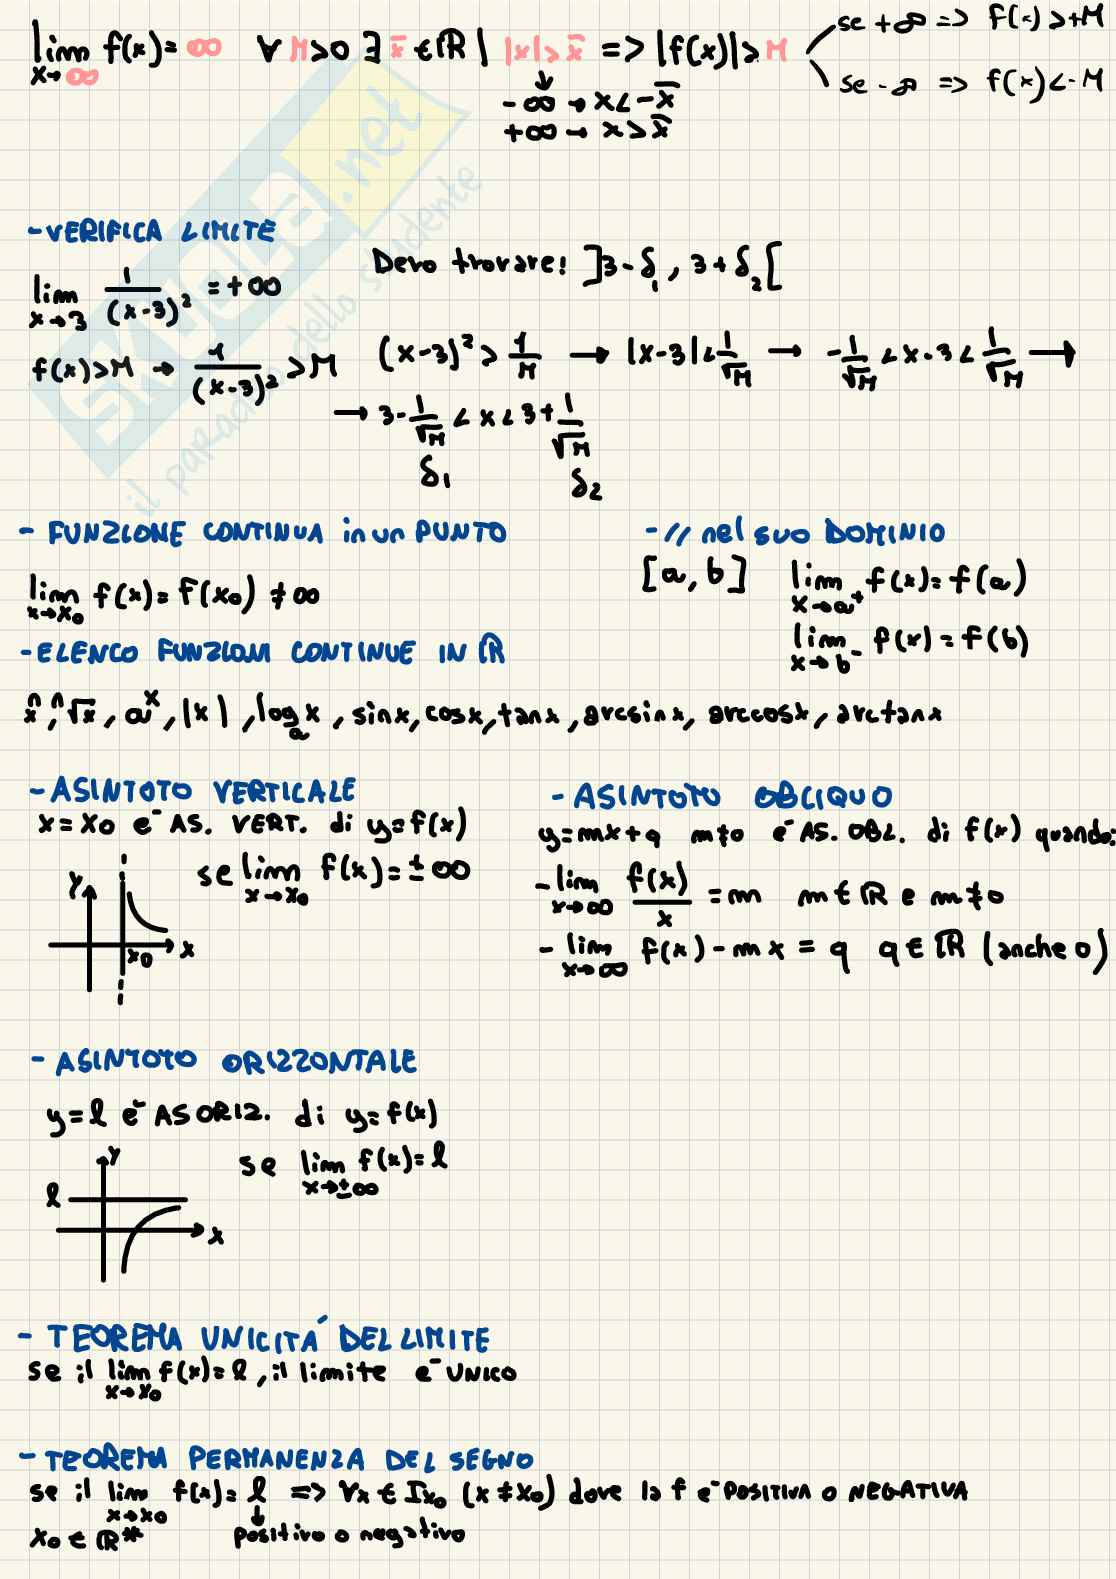 lim f(x)=∞ ∀ M>0 ∃ x̄ ∈ ℝ | |x|>x̄ => |f(x)|>M
x→∞
se +∞ => f(x)>+M
se -∞ => f(x)<-M
↓
-∞ → x<-x̄
+∞ → x>x̄
SKUOLA.net
il paradiso dello studente
- VERIFICA LIMITE
lim 1/(x-3)² = +∞
x→3
Devo trovare! ]3-δ₁, 3+δ₂[
f(x)>M → 1/(x-3)² >M (x-3)² > 1/M → |x-3|<1/√M → -1/√M < x-3 < 1/√M →
→ 3-1/√M < x < 3+1/√M
δ₁ δ₂
- FUNZIONE CONTINUA in un PUNTO
lim f(x)=F(x₀) ≠ ∞
x→x₀
- // nel suo DOMINIO
[a, b] lim f(x)=f(a)
x→a⁺
lim f(x)=f(b)
x→b⁻
- ELENCO FUNZIONI CONTINUE IN ℝ
xⁿ, ⁿ√x, aˣ, |x|, logₐx, sinx, cosx, tanx, arcsinx, arccosx, arctanx
- ASINTOTO VERTICALE
x=x₀ e- AS. VERT. di y=f(x)
se lim f(x)=±∞
x→x₀
Y
x₀ x
- ASINTOTO OBLIQUO
y=mx+q m≠0 e- AS. OBL. di f(x) quando:
- lim f(x)/x = m m∈ℝ e m≠0
x→∞
- lim f(x)-mx = q q∈ℝ (anche 0)
x→∞
- ASINTOTO ORIZZONTALE
y=l e- AS ORIZ. di y=f(x)
se lim f(x)=l
x→±∞
Y
l
x
- TEOREMA UNICITA' DEL LIMITE
se il lim f(x)=l, il limite e- UNICO
x→x₀
- TEOREMA PERMANENZA DEL SEGNO
se il lim f(x)=l => ∀x ∈ Ix₀ (x≠x₀) dove la f e- POSITIVA O NEGATIVA
x→x₀ ↓
x₀ ∈ ℝ* positivo o negativo